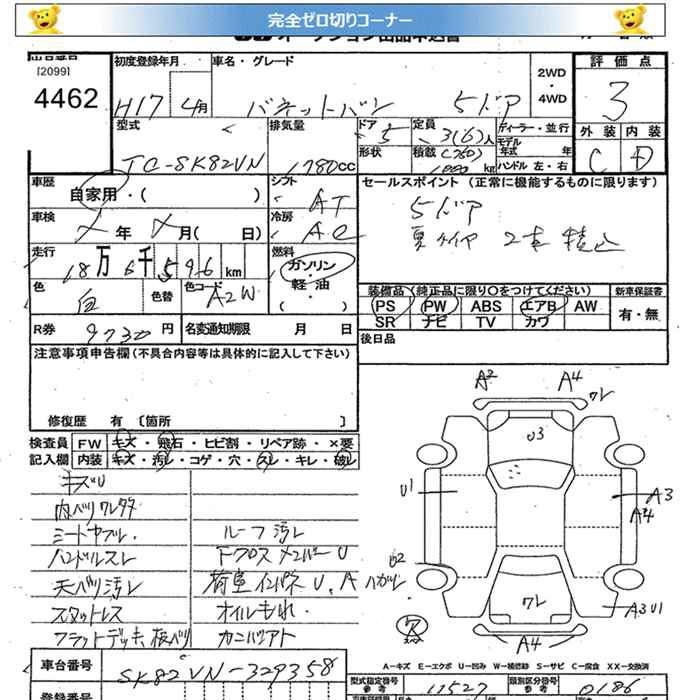 完全ゼロ切りコーナー
[2099]
4462
初度登録年月
H17 4月
車名・グレード
バネットバン 5ドア
2WD
・
4WD
評価点
3
外装 内装
C D
型式
TC-SK82VN
排気量
1780cc
ドア 5
形状
定員 3(6)人
積載
ディーラー・並行
モデル年式 年
ハンドル 左・右
車歴
自家用・( )
シフト AT
冷房 AC
セールスポイント (正常に機能するものに限ります)
5ドア
夏タイヤ 2本 積込
車検
年 月( 日)
走行
18万6千596km
燃料
ガソリン
・
軽油
色 白
色替
色コード A2W
装備品 (純正品に限り〇をつけてください)
PS PW ABS エアB AW
SR ナビ TV カワ
新車保証書
有・無
R券 9730円
名変通知期限 月 日
後日品
注意事項申告欄(不具合内容等は具体的に記入して下さい)
修復歴 有 〔箇所 〕
検査員
記入欄
FW キズ・飛石・ヒビ割・リペア跡・×要
内装 キズ・汚レ・コゲ・穴・スレ・キレ・破レ
キズU
ハンドルスレ
天バリ汚レ
ルーフ汚レ
下クロスメンバーU
荷室インパネU、A ハガレ
オイルもれ
A2 A4 ワレ
U3
U1
A3
A4
ワレ
A3U1
A4
車台番号
SK82VN-329358
登録番号
A-キズ E-エクボ U-凹み W-補修跡 S-サビ C-腐食 X-要交換 XX-交換済
型式指定番号
参考 11527
類別区分番号
参考 0186